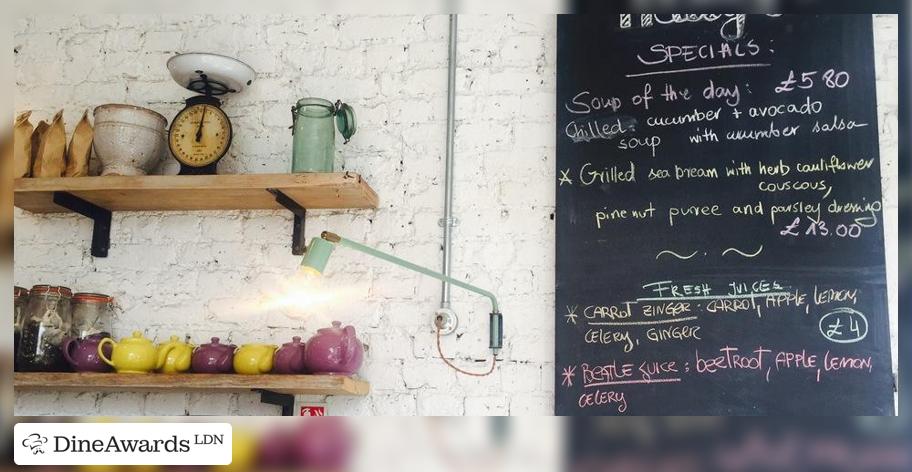 SPECIALS:
Soup of the day: £5.80
Chilled: cucumber + avocado
soup with cucumber salsa
* Grilled sea bream with herb cauliflower
couscous,
pine nut puree and parsley dressing
£13.00
FRESH JUICES
* CARROT ZINGER: CARROT, APPLE, LEMON,
CELERY, GINGER
£4
* BEETLE JUICE: BEETROOT, APPLE, LEMON,
CELERY
DineAwards LDN